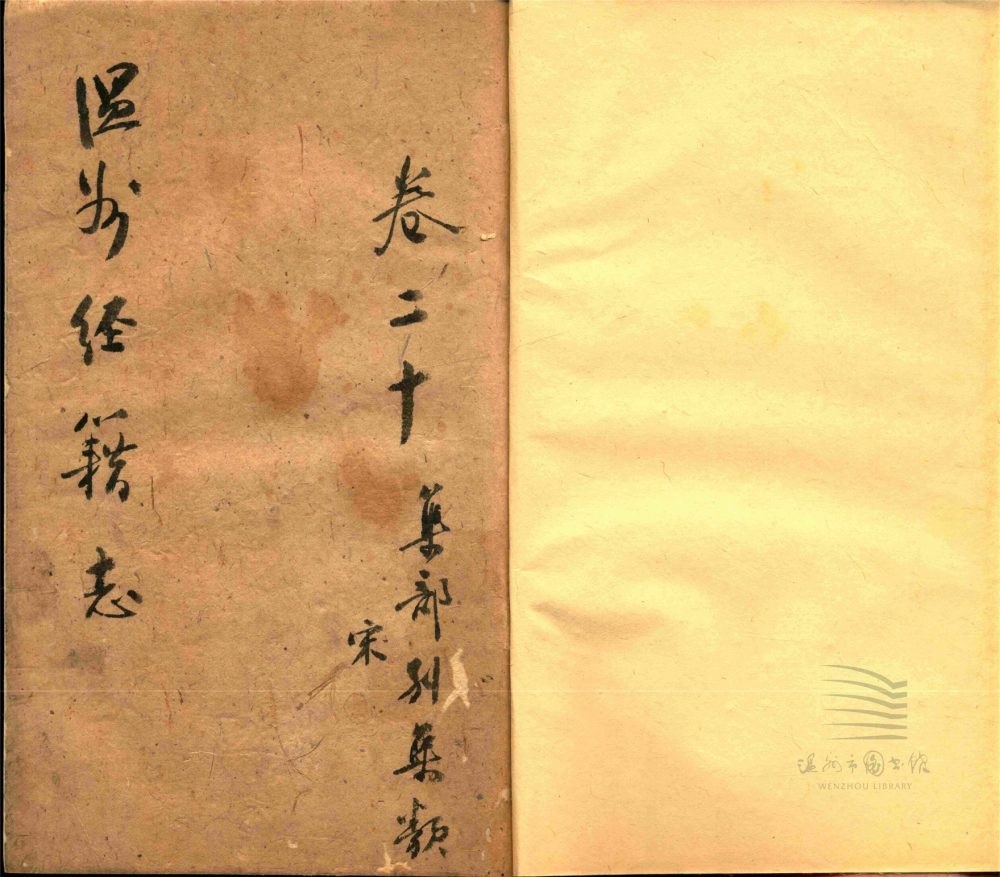 卷二十 集部别集類
宋
温州经籍志
温州市图书馆
WENZHOU LIBRARY